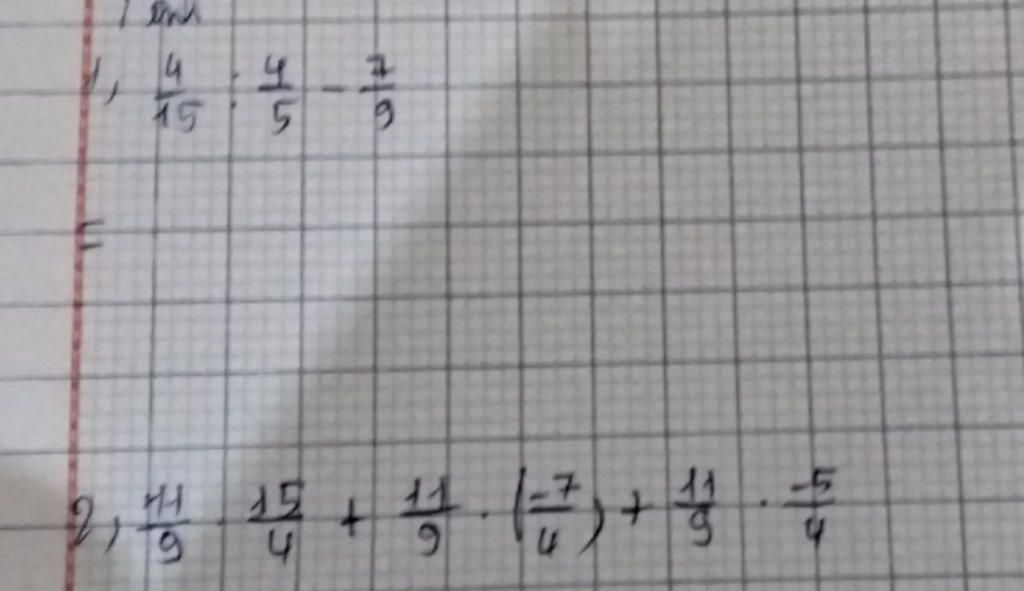 1, 4/15 : 4/5 - 7/9
=
2, 11/9 · 15/4 + 11/9 · (-7/4) + 11/9 · -5/4